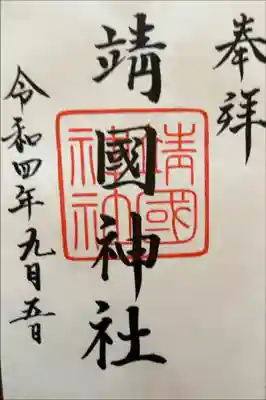 奉祥
靖國神社
靖國神社
令和四年九月五日